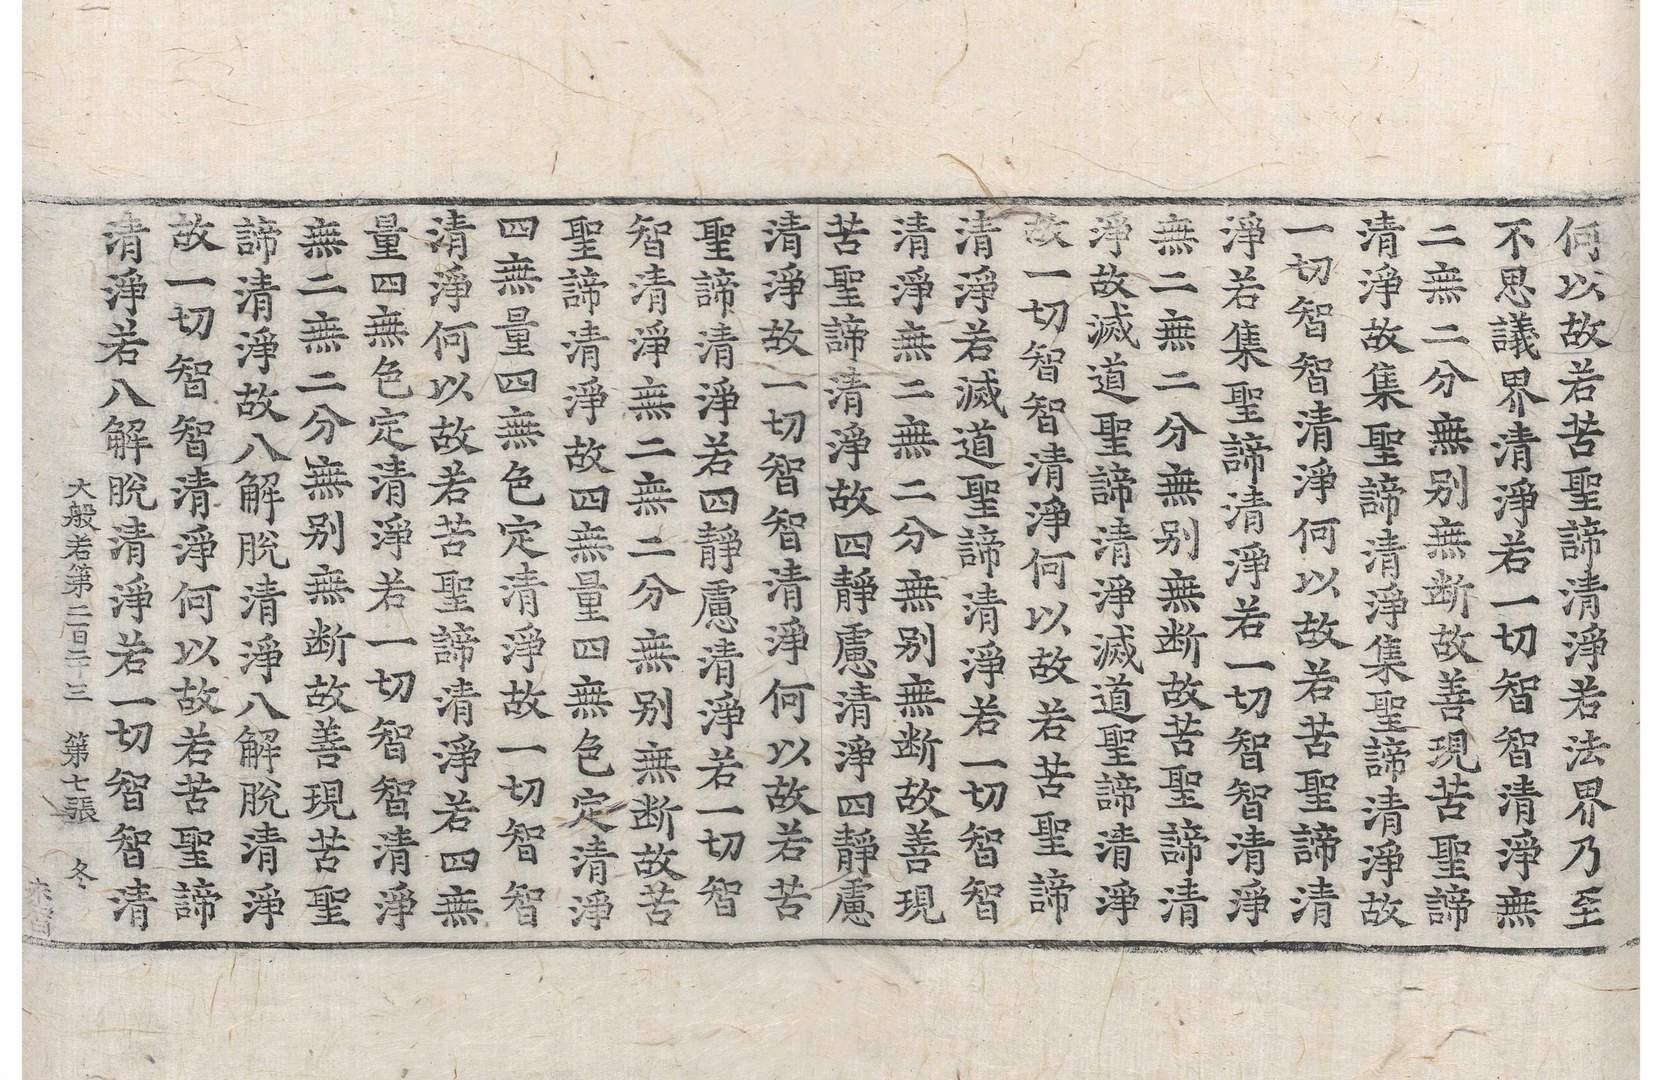 何以故若苦聖諦清淨若法界乃至
不思議界清淨若一切智智清淨無
二無二分無别無断故善現苦聖諦
清淨故集聖諦清淨集聖諦清淨故
一切智智清淨何以故若苦聖諦清
淨若集聖諦清淨若一切智智清淨
無二無二分無别無断故苦聖諦清
淨故滅道聖諦清淨滅道聖諦清淨
故一切智智清淨何以故若苦聖諦
清淨若滅道聖諦清淨若一切智智
清淨無二無二分無别無断故善現
苦聖諦清淨故四靜慮清淨四靜慮
清淨故一切智智清淨何以故若苦
聖諦清淨若四靜慮清淨若一切智
智清淨無二無二分無别無断故苦
聖諦清淨故四無量四無色定清淨
四無量四無色定清淨故一切智智
清淨何以故若苦聖諦清淨若四無
量四無色定清淨若一切智智清淨
無二無二分無别無断故善現苦聖
諦清淨故八解脫清淨八解脫清淨
故一切智智清淨何以故若苦聖諦
清淨若八解脫清淨若一切智智清
大般若第二百二十三 第七張 冬